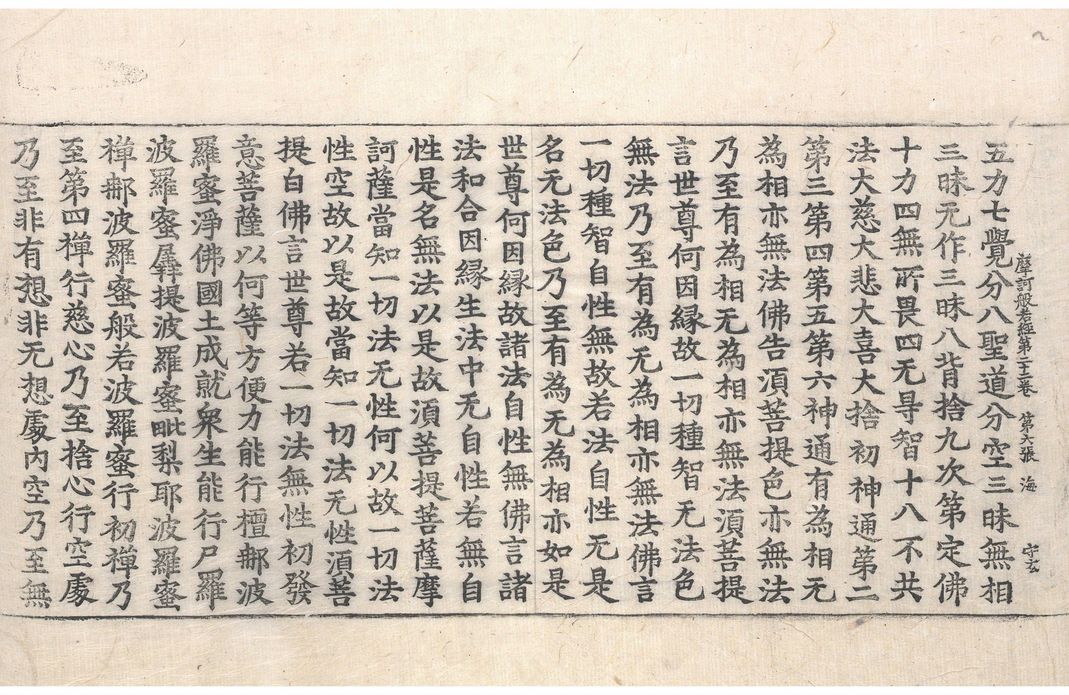 摩訶般若經第二十三卷 第六張 海 守玄
五力七覺分八聖道分空三昧無相
三昧无作三昧八背捨九次第定佛
十力四無所畏四无导智十八不共
法大慈大悲大喜大捨初神通第二
第三第四第五第六神通有為相无
為相亦無法佛告湏菩提色亦無法
乃至有為相无為相亦無法湏菩提
言世尊何因縁故一切種智无法色
無法乃至有為无為相亦無法佛言
一切種智自性無故若法自性无是
名无法色乃至有為无為相亦如是
世尊何因縁故諸法自性無佛言諸
法和合因縁生法中无自性若無自
性是名無法以是故湏菩提菩薩摩
訶薩當知一切法无性何以故一切法
性空故以是故當知一切法无性湏菩
提白佛言世尊若一切法無性初發
意菩薩以何等方便力能行檀𨚗波
羅蜜淨佛國土成就衆生能行尸羅
波羅蜜羼提波羅蜜毗梨耶波羅蜜
禅𨚗波羅蜜般若波羅蜜行初禅乃
至第四禅行慈心乃至捨心行空處
乃至非有想非无想處內空乃至無